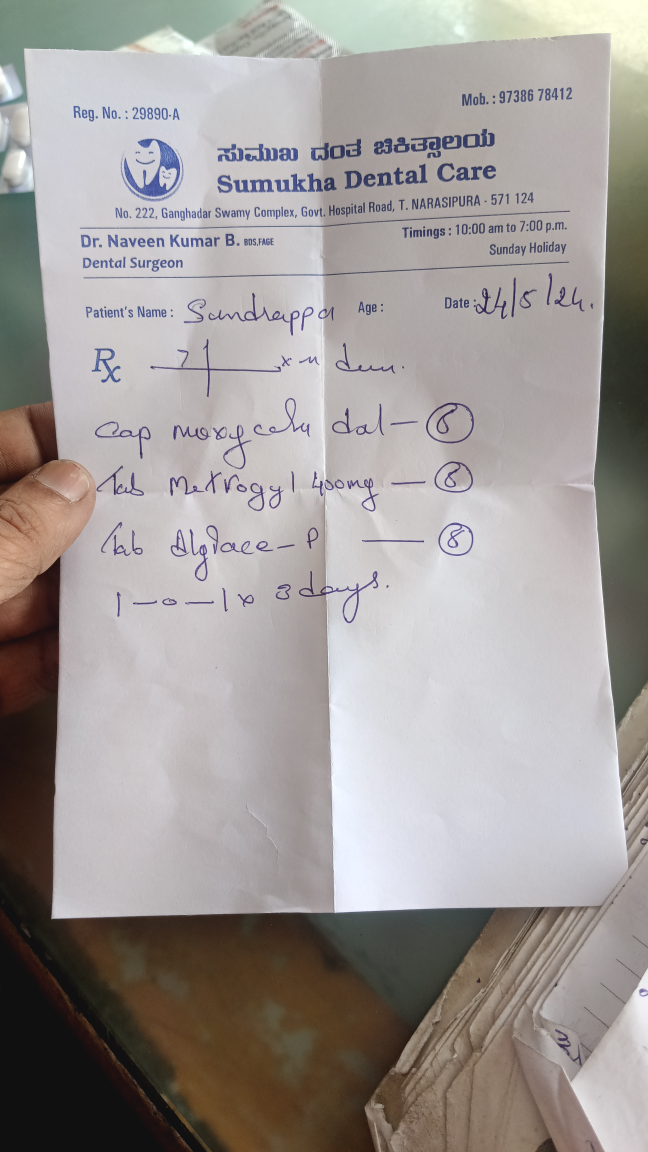 Reg. No. : 29890-A
Mob. : 97386 78412
ಸುಮುಖ ದಂತ ಚಿಕಿತ್ಸಾಲಯ
Sumukha Dental Care
No. 222, Ganghadar Swamy Complex, Govt. Hospital Road, T. NARASIPURA - 571 124
Dr. Naveen Kumar B. BDS,FAGE
Timings : 10:00 am to 7:00 p.m.
Dental Surgeon
Sunday Holiday
Patient's Name : Sundrappa Age : Date : 24/5/24.
Rx 7
Cap — 6
Tab Metrogyl 400mg — 6
Tab — P — 6
1-0-1 x 3 days.